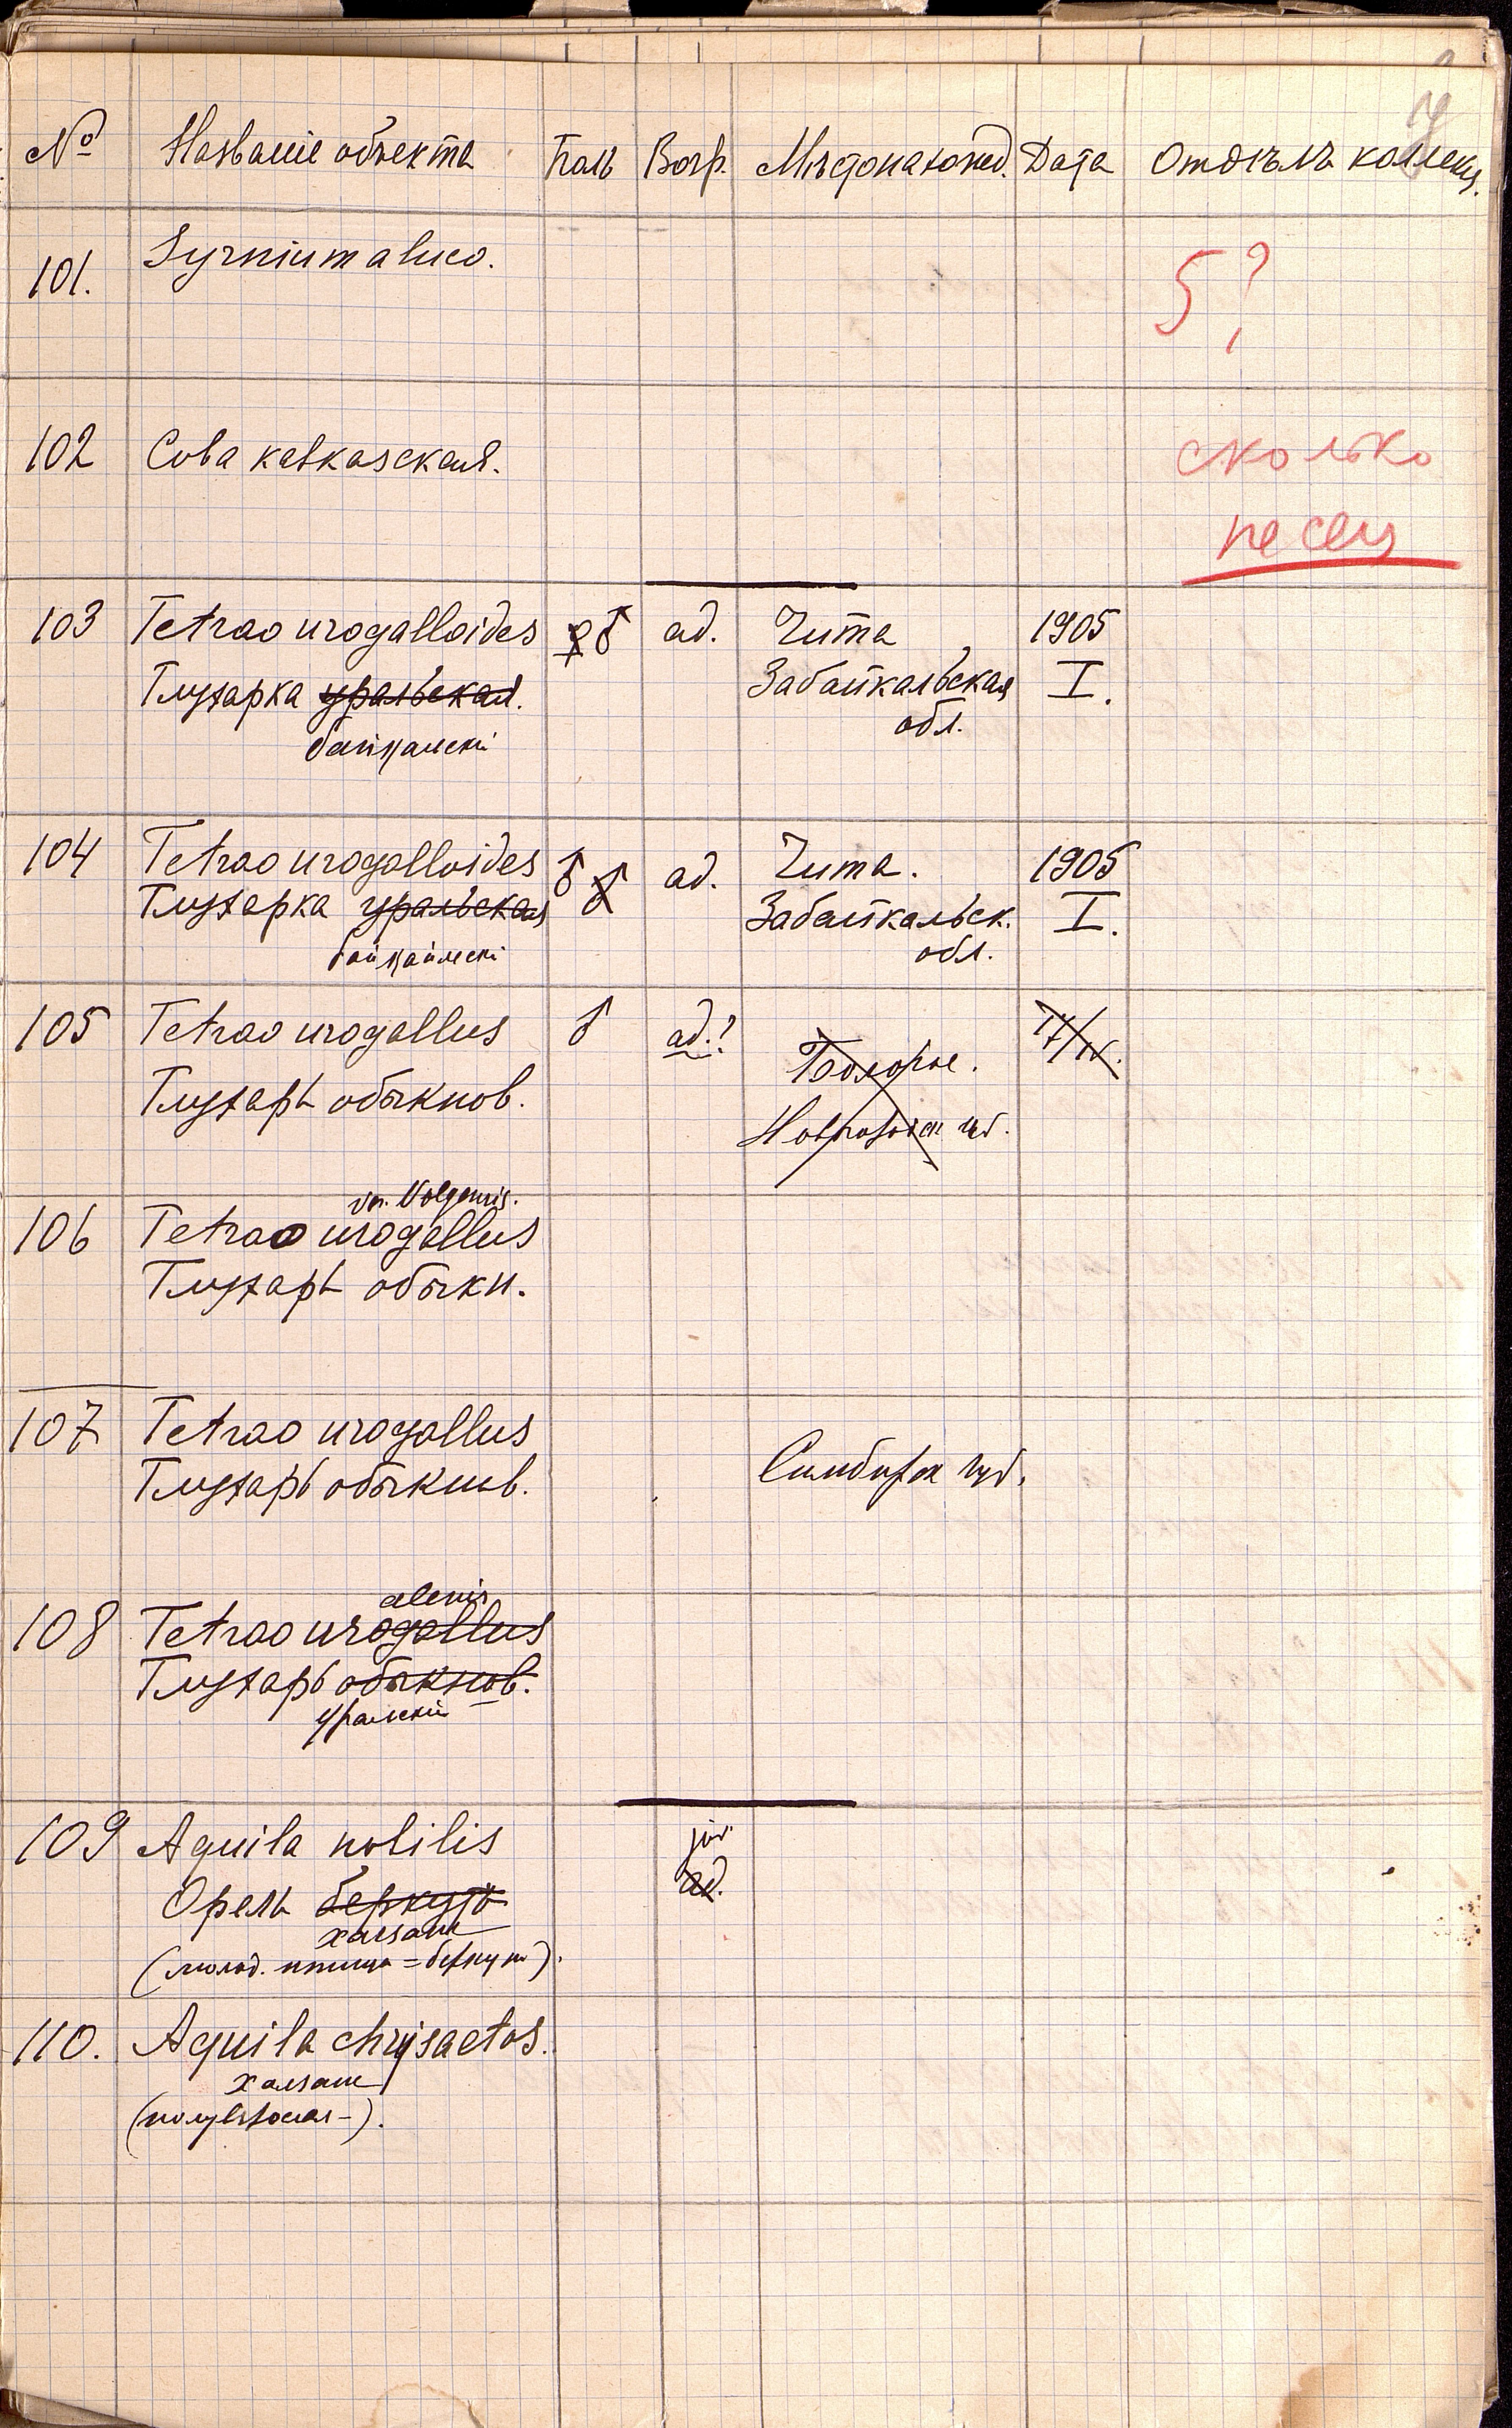 № Названіе объекта Полъ Возр. Мѣстонахожд. Дата Отдѣлъ коллекц.
101. Syrnium aluco.
5?
102 Сова кавказская.
сколько
песец
103 Tetrao urogalloides ♀ ♂ ad. Чита 1905
Глухарка уральская. Забайкальская I.
обл.
байкальскі
104 Tetrao urogalloides ♂ ♂ ad. Чита. 1905
Глухарка уральская Забайкальск. I.
байкальскі обл.
105 Tetrao urogallus ♂ ad.! 17/IV.
Бологое.
Глухарь обыкнов. Новгородск губ.
var. Volgensis.
106 Tetrao urogallus
Глухарь обыкн.
107 Tetrao urogallus
Глухарь обыкнов. Симбирск губ.
alensis
108 Tetrao urogallus
Глухарь обыкнов.
уральскій
109 Aquila nobilis juv.
Орелъ беркутъ ad.
халзан
(молод. птица = беркут).
110. Aquila chrysaetos.
халзан
(полувзрослая -).